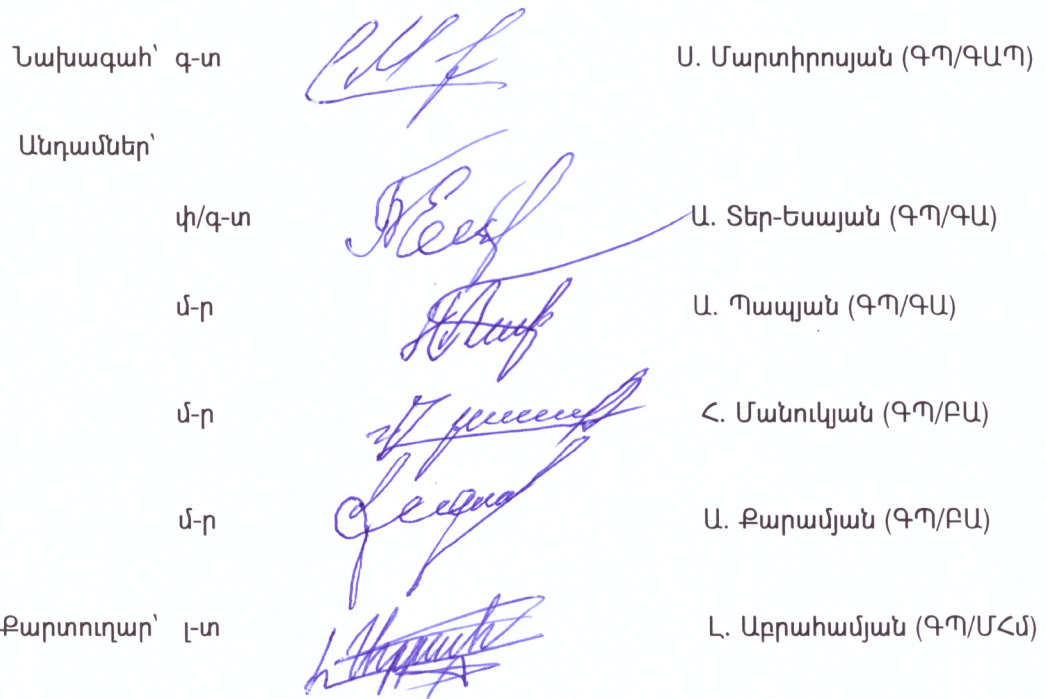 Նախագահ՝ գ-տ Ս. Մարտիրոսյան (ԳՊ/ԳԱՊ)
Անդամներ՝
փ/գ-տ Ա. Տեր-Եսայան (ԳՊ/ԳԱ)
մ-ր Ա. Պապյան (ԳՊ/ԳԱ)
մ-ր Հ. Մանուկյան (ԳՊ/ԲԱ)
մ-ր Ա. Քարամյան (ԳՊ/ԲԱ)
Քարտուղար՝ լ-տ Լ. Աբրահամյան (ԳՊ/ՄՀմ)